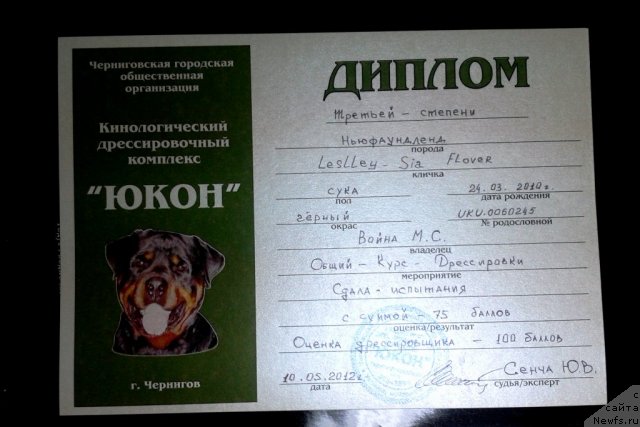 Черниговская городская
общественная
организация
Кинологический
дрессировочный
комплекс
"ЮКОН"
г. Чернигов
ДИПЛОМ
Третьей - степени
Ньюфаундленд
порода
Leslley - Sia Flover
кличка
сука
пол
24.03.2010г.
дата рождения
чёрный
окрас
UKU.0060245
№ родословной
Война М.С.
владелец
Общий - Курс - Дрессировки
мероприятие
Сдала - испытания
с суммой - 75 баллов
оценка/результат
Оценка дрессировщика - 100 баллов
"ЮКОН"
10.05.2012г.
дата
Сенча Ю.В.
судья/эксперт
с
сайта
Newfs.ru